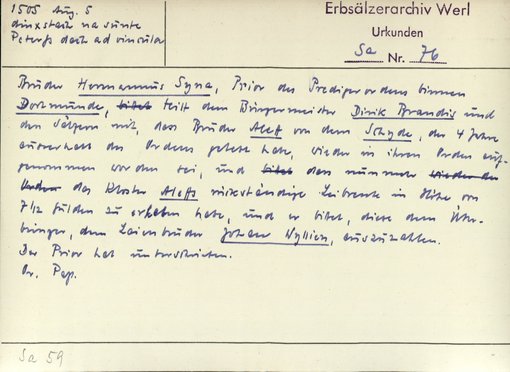 1505 Aug. 5
dinxstach na sunte
Peters dach ad vincula
Erbsälzerarchiv Werl
Urkunden
Sa Nr. 76
Bruder Hermannus Syna, Prior des Predigerordens binnen
Dortmunde, bittet teilt dem Bürgermeister Dirik Brandis und
den Sälzern mit, dass Bruder Aleff von dem Schyde, der 4 Jahre
ausserhalb des Ordens gelebt habe, wieder in ihren Orden auf-
genommen worden sei, und bittet dass nunmehr wieder den
das Kloster Aleffs rückständige Leibrente in Höhe von
7 1/2 Gulden zu erheben habe, und er bittet, diese dem Über-
bringer, dem Laienbruder Johan Wyllien, auszuzahlen.
Der Prior hat unterschrieben.
Or. Pap.
Sa 59